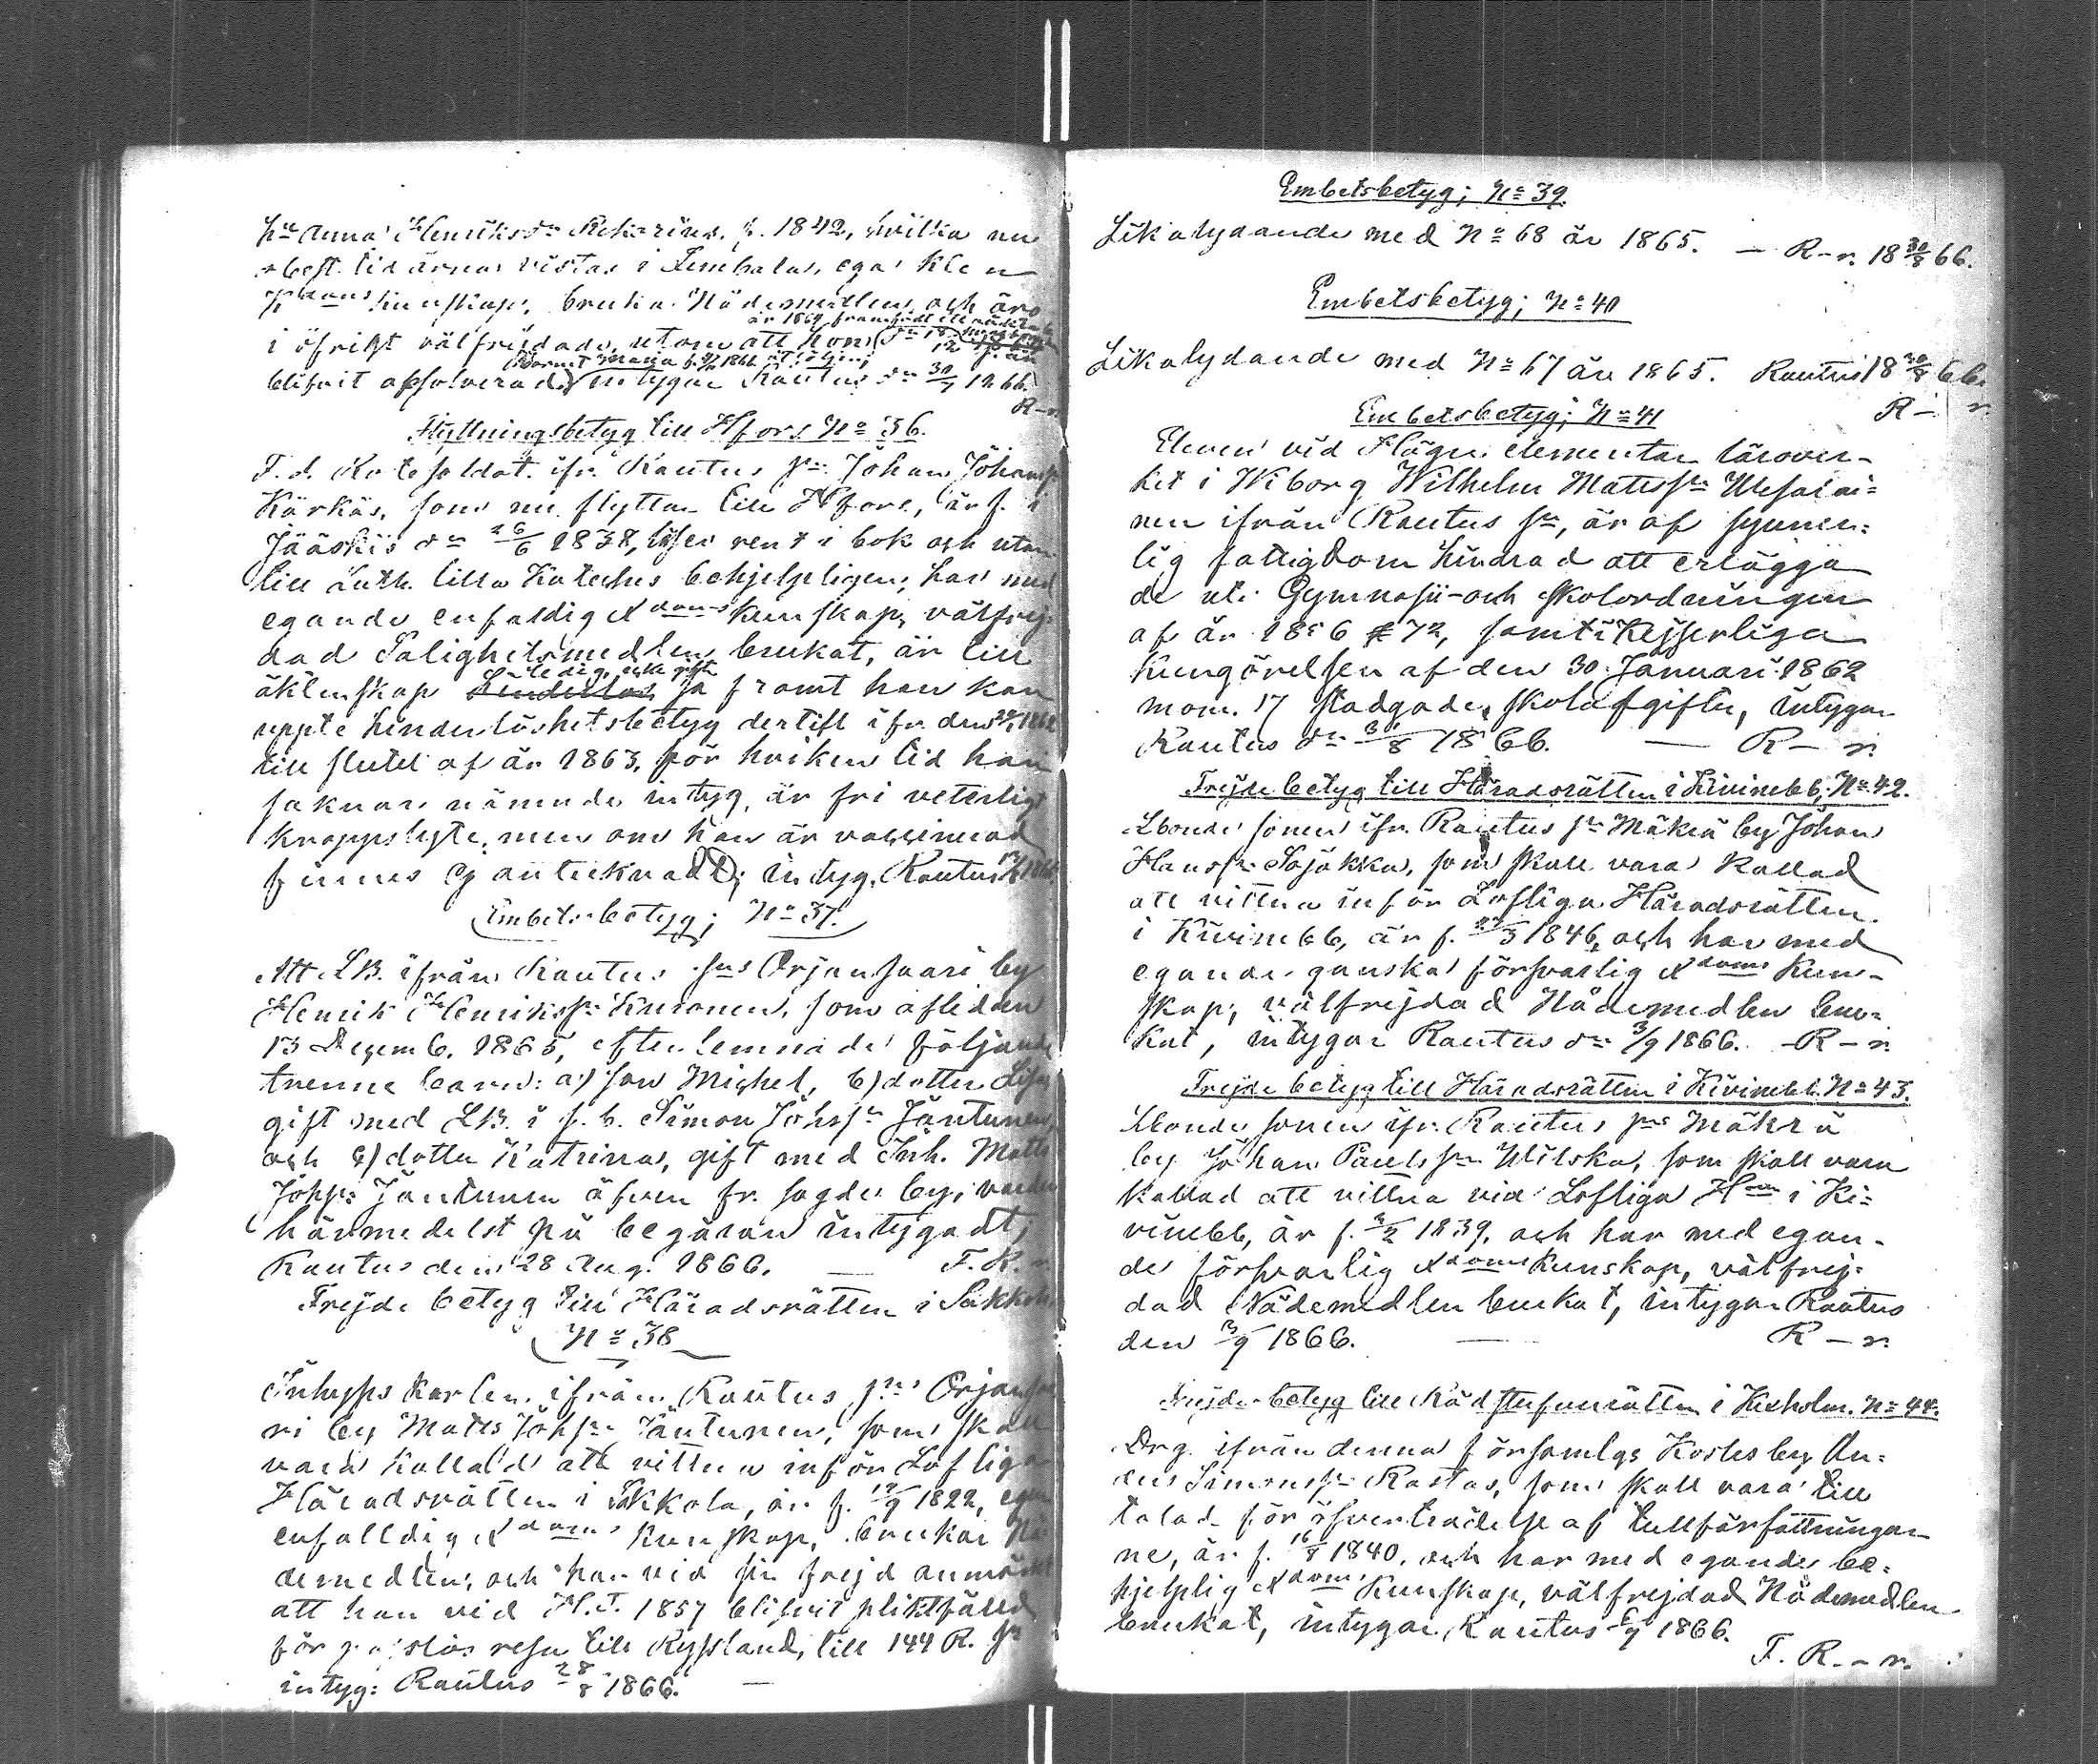 hu Anna Henriksdr 1842, hvilka nu
obest. tid ärnar vistas i Tembala, ega klen
Xdoms kunskap, bruka Nådemedlen och äro
år 1864 framfödt ett
i öfrigt välfrejdade, utom att hon
Barnet Maria
blifvit absolverad; intygar Rautus dn 30/7 1866.
R–r.
Flyttningsbetyg till Hfors No 36.
F. d. Rotesoldat. ifr. Rautus sn Johan Johanss
Kärkäs, som nu flyttar till Hfors, är f. i
Jääskis dn 26/6 1838, läser rent i bok och utan
till Luth. lilla Kateches behjelpligen; har med
egande enfaldig Xdoms kunskap, välfrej-
dad Salighetsmedlen brukat, är till
ledig, icke gift
äktenskap hinderlös ja framt han kan
uppte hinderlöshetsbetyg dertill ifr. den 1862
till slutet af år 1863, för hvilken tid han
saknar nämnde intyg, är fri veterligt
kroppslyte, men om han är vaccinerad
finnes ej antecknadt; intyg. Rautus
Embetsbetyg; No 37.
Att LB. ifrån Rautus sns Orjansaari by
Henrik Henrikssn Kuronen, som afliden
13 Decemb. 1865, efterlemnade följande
trenne barn: a) son Michel, b) dotter Lisa
gift med LB. i s. b. Simon Johssn Jäntunen,
och c) dotter Katrina, gift med Inh. Matts
Johss: Jäntunen äfven fr. sagde by; varder
härmedelst på begäran intygadt;
Rautus den 28 Aug. 1866. — F. R.–r
Frejdebetyg till Häradsrätten i Sakkola
No 38
Inhysskarlen ifrån Rautus sns Orjansaa
ri by Matts Johssn Jäntunen, som skall
vara kallad att vittna inför Lofliga
Häradsrätten i Sakkola, är f. 19/9 1822, egan
enfalldig Xdoms kunskap, brukar Nå
demedlen, och har vid sin frejd anmärkt
att han vid H.T. 1857 blifvit pliktfälld
för passlös resa till Ryssland, till 144 R. Sr
intyg: Rautus 28/8 1866. —
Embetsbetyg; No 39.
Likalydande med No 68 år 1865. — R–r. 18 30/8 66.
Embetsbetyg; No 40
Likalydande med No 67 år 1865. Rautus 18 30/8 66.
R– r.
Embetsbetyg; No 41
Eleven vid Högre elementar lärover-
ket i Wiborg Wilhelm Matssn Wesalai=
nen ifrån Rautus sn, är af synner-
lig fattigdom hindrad att erlägga
de uti Gymnasii- och skolordningen
af år 1856 § 72, samt i Kejserliga
Kungörelsen af den 30 Januari 1862
mom. 17 stadgade skolafgifter, intygar
Rautus dn 31/8 1866. — R– r.
Frejdebetyg till Häradsrätten i Kivinebb; No 42.
Lbonde sonen ifr. Rautus sn Mäkrä by Johan
Hanssn Säjäkka, som skall vara kallad
att vittna inför Lofliga Häradsrätten
i Kivinebb, är f. 27/3 1846, och har med
egande ganska försvarlig Xdoms kun-
skap, välfrejdad Nådemedlen bru-
kat, intygar Rautus dn 3/9 1866. –R–r.
Frejdebetyg till Häradsrätten i Kivinebb. No 43.
Lbonde sonen ifr. Rautus sns Mäkrä
by Johan Paulssn Wilska, som skall vara
kallad att vittna vid Lofliga Hrn i Ki-
vinebb, är f. 3/2 1839, och har med egan-
de försvarlig Xdoms kunskap, välfrej-
dad Nådemedlen brukat, intygar Rautus
den 3/9 1866. — R–r.
Frejdebetyg till Rådstufvurätten i Kexholm. No 44.
Drg. ifrån denna församlgs Kosles by An-
ders Simonssn Rastas, som skall vara till
talad för öfverträdelse af tullförfattningar-
ne, är f. 16/8 1840, och har med egande be-
hjelplig Xdoms kunskap, välfrejdad Nådemedlen
brukat, intygar Rautus 5/9 1866.
F. R.–r.